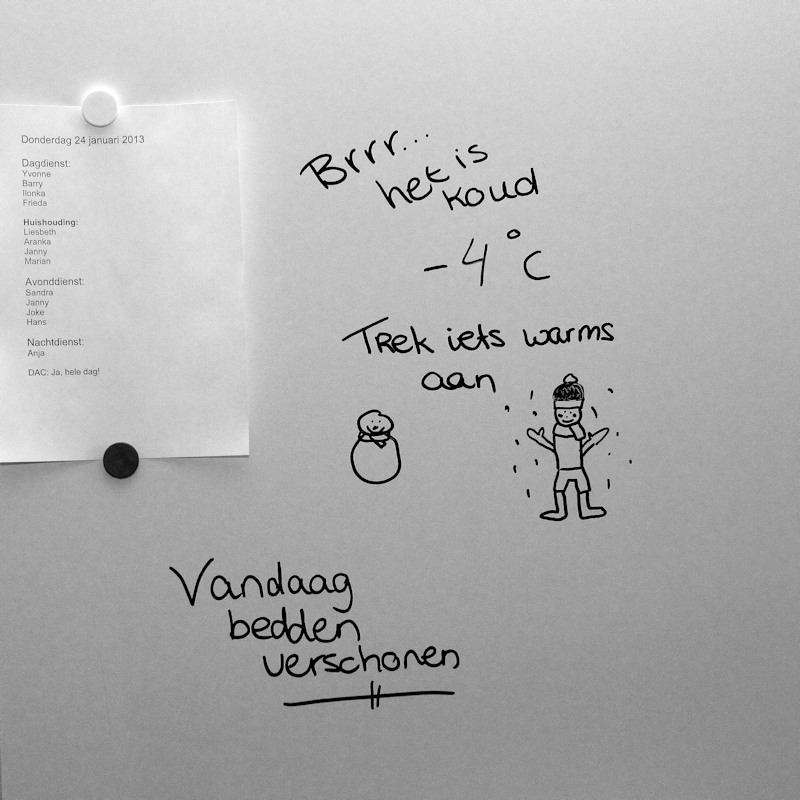 Donderdag 24 januari 2013
Dagdienst:
Yvonne
Barry
Ilonka
Frieda
Huishouding:
Liesbeth
Aranka
Janny
Marian
Avonddienst:
Sandra
Janny
Joke
Hans
Nachtdienst:
Anja
DAC: Ja, hele dag!
Brrr...
het is
koud
-4°C
Trek iets warms
aan
Vandaag
bedden
verschonen